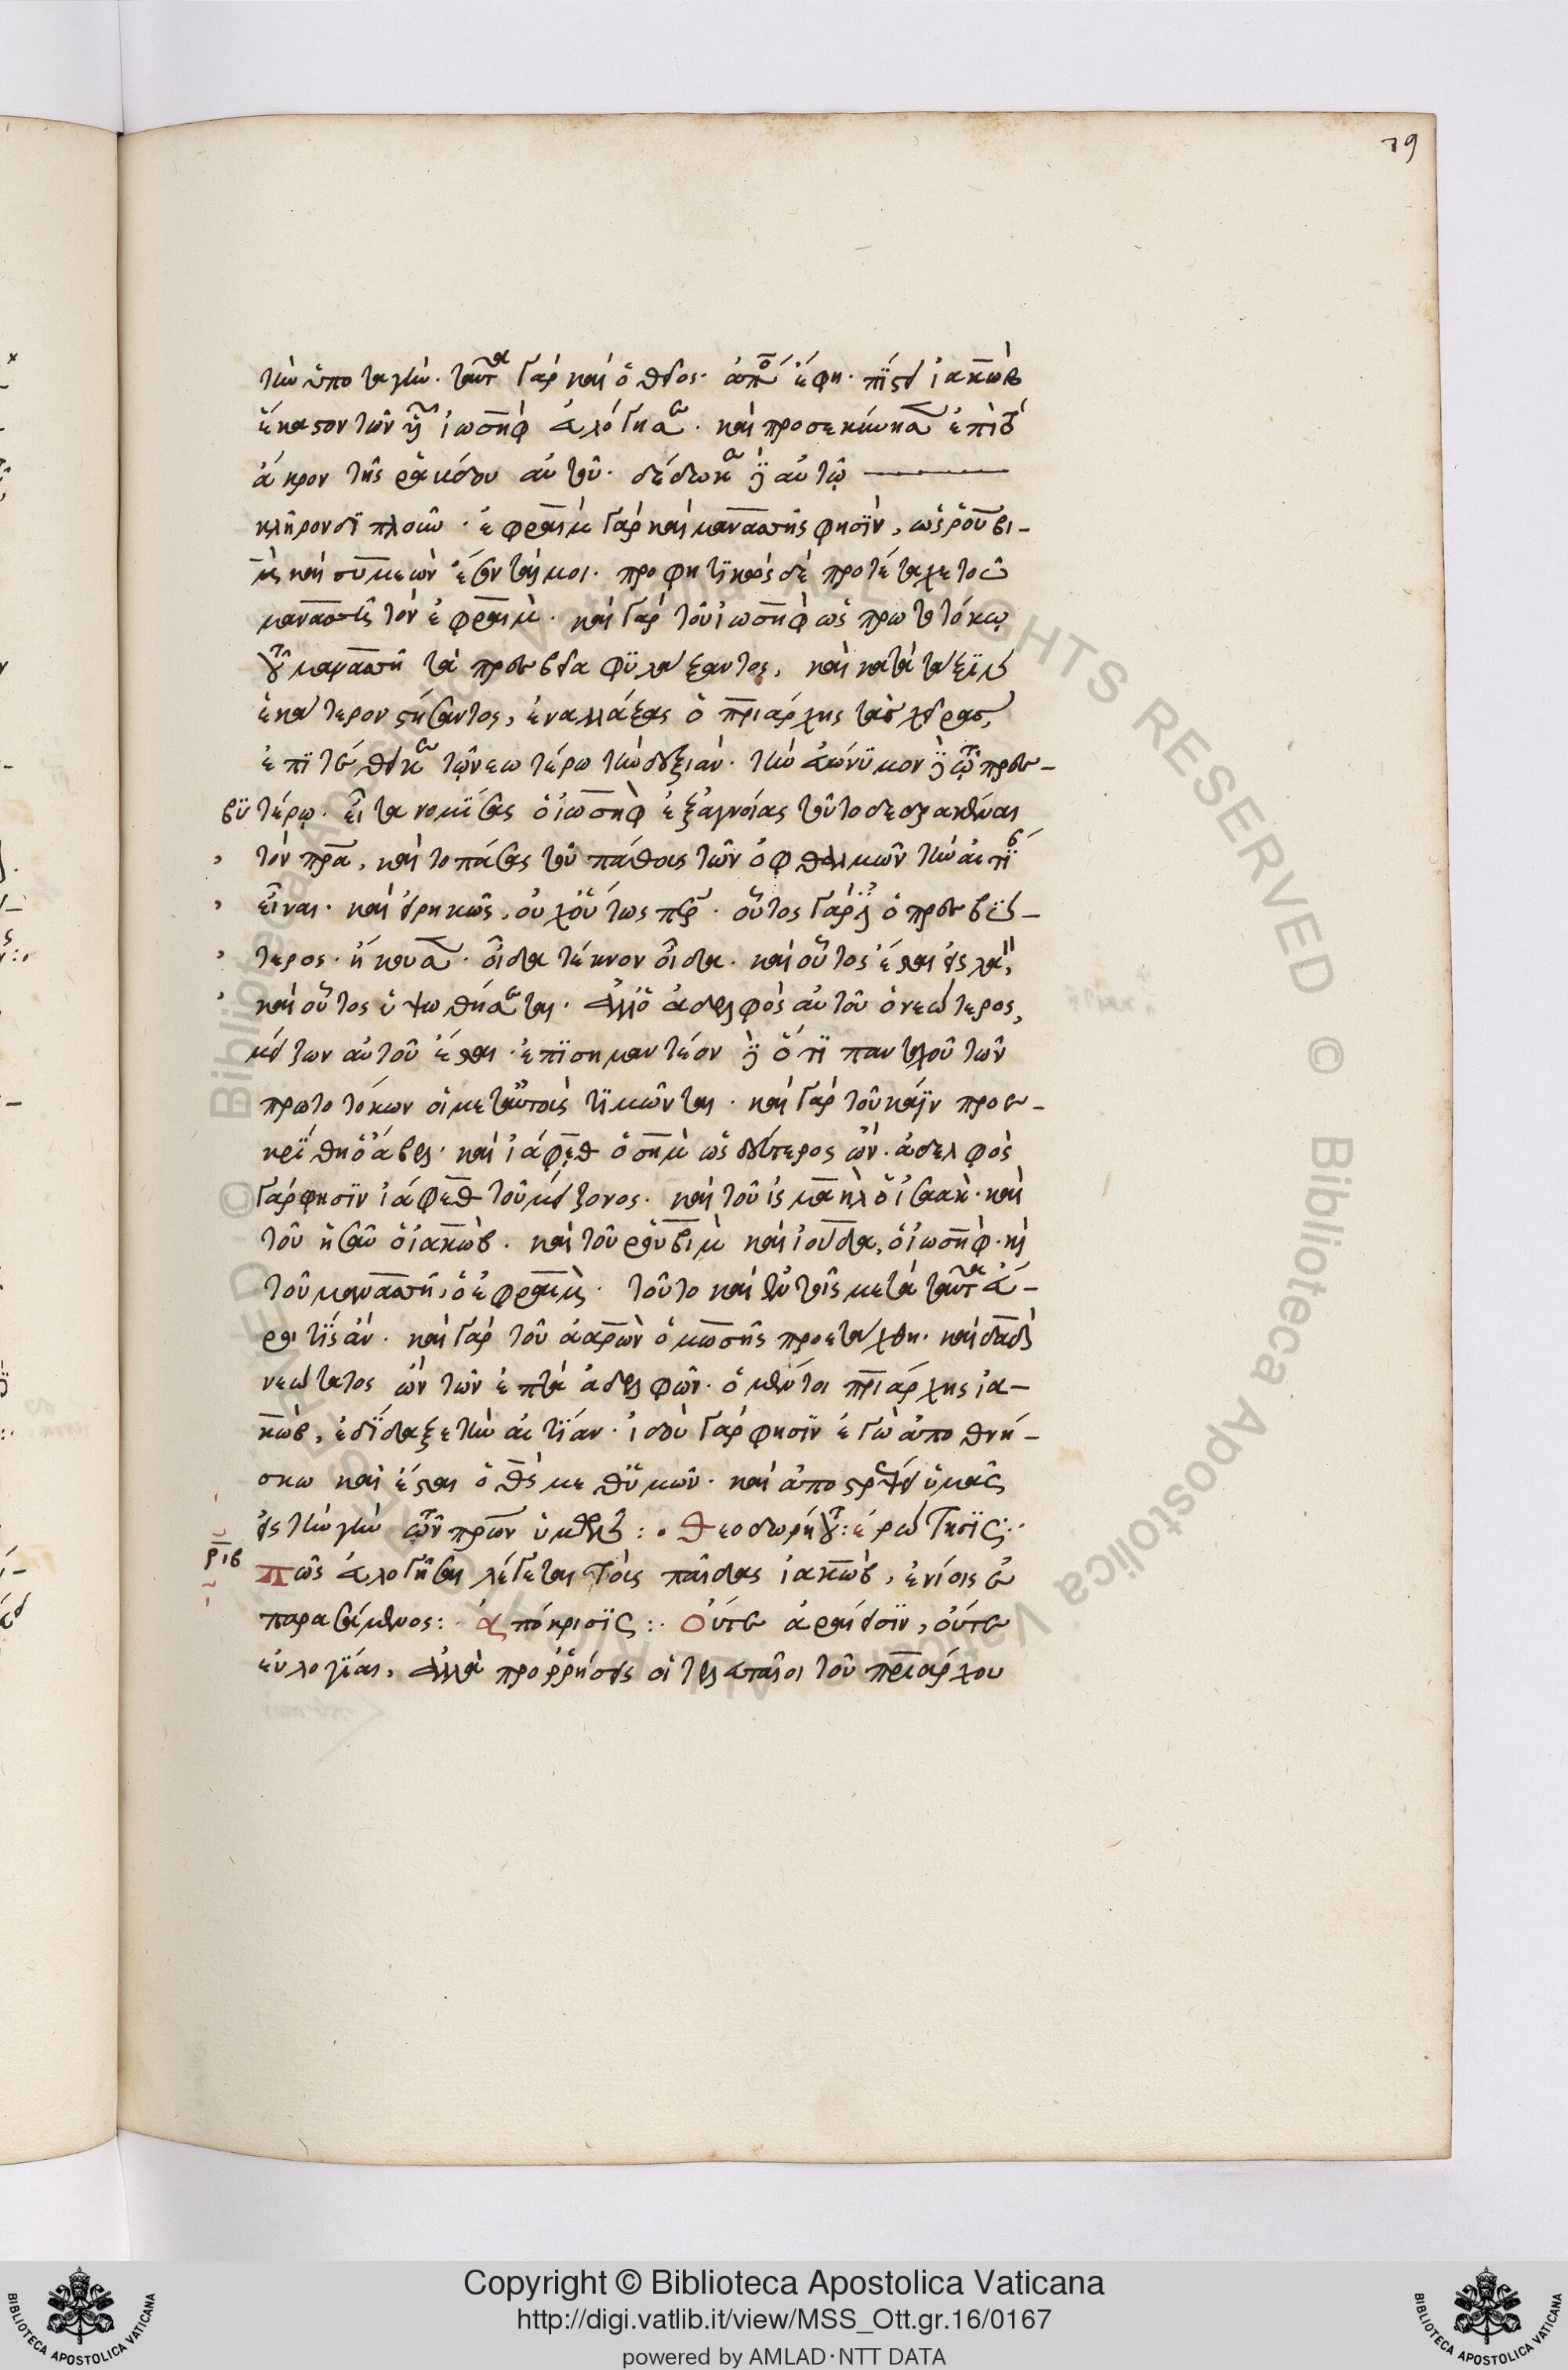 79
τὴν ὑποταγήν. ταῦτα γὰρ καὶ ὁ θεῖος ἀπό ἔφη. πίστει ἰακὼβ
ἕκαστον τῶν υἱῶν ἰωσὴφ εὐλόγησε. καὶ προσεκύνησεν ἐπὶ τὸ
ἄκρον τῆς ῥάβδου αὐτοῦ. δέδωκε δὲ αὐτῷ
κλῆρον διπλοῦν. ἐφραῒμ γὰρ καὶ μανασσῆς φησὶν, ὡς ῥουβὶ-
μ καὶ συμεὼν ἔσονταί μοι. προφητικῶς δὲ προτέταχε τοῦ
μανασσῆ τὸν ἐφραΐμ. καὶ γὰρ τοῦ ἰωσὴφ ὡς πρωτοτόκῳ
τῷ μανασσῆ τὰ πρεσβεῖα φυλάξαντος, καὶ κατὰ τάξιν
ἑκάτερον στήσαντος, ἐναλλάξας ὁ πριάρχης τὰς χεῖρας,
ἐπιτέθεικε τῷ νεωτέρῳ τὴν δεξιάν. τὴν εὐώνυμον δὲ τῷ πρεσ-
βυτέρῳ. εἶτα νομίσας ὁ ἰωσὴφ ἐξ ἀγνοίας τοῦτο δεδρακέναι
τὸν πρα, καὶ τὸ πάθος τοῦ πάθους τῶν ὀφθαλμῶν τὴν αἰτίαν
εἶναι. καὶ εἰρηκὼς, οὐχ οὕτως περ. οὗτος γὰρ ὁ πρεσβύ-
τερος. ἤκουσεν. οἶδα τέκνον οἶδα. καὶ οὗτος ἔσται εἰς λαόν,
καὶ οὗτος ὑψωθήσεται. ἀλλ' ὁ ἀδελφὸς αὐτοῦ ὁ νεώτερος,
μείζων αὐτοῦ ἔσται. ἐπισημαντέον δὲ ὅτι πανταχοῦ τῶν
πρωτοτόκων οἱ μετ' αὐτοὺς τιμῶνται. καὶ γὰρ τοῦ κάϊν προε-
κρίθη ὁ ἄβελ. καὶ ἰάφεθ ὁ σὴμ ὡς δεύτερος ὤν. ἀδελφὸς
γὰρ φησὶν ἰάφεθ τοῦ μείζονος. καὶ τοῦ ἰσμαὴλ ὁ ἰσαάκ. καὶ
τοῦ ἠσαῦ ὁ ἰακώβ. καὶ τοῦ ῥουβὶμ καὶ ἰούδα, ὁ ἰωσήφ. καὶ
τοῦ μανασσῆ, ὁ ἐφραΐμ. τοῦτο καὶ ἐν τοῖς μετὰ ταῦτα εὕ-
ροι τὶς ἄν. καὶ γὰρ τοῦ ἀαρὼν ὁ μωσῆς προετάχθη. καὶ δαδ
νεώτατος ὢν τῶν ἑπτὰ ἀδελφῶν. ὁ μέντοι πριάρχης ἰα-
κὼβ, ἐδίδαξε τὴν αἰτίαν. ἰδοὺ γὰρ φησὶν ἐγὼ ἀποθνή-
σκω καὶ ἔσται ὁ θς μεθ' ὑμῶν. καὶ ἀποστρέψει ὑμᾶς
εἰς τὴν γῆν τῶν πρων ὑμῶν: . Θεοδωρήτου: ἐρώτησις:
ριβ
Πῶς εὐλογῆσαι λέγεται τοὺς παῖδας ἰακὼβ, ἐνίοις ἐ
παρασάμενος: ἀπόκρισις: Οὔτε ἀραί εἰσιν, οὔτε
εὐλογίαι, ἀλλὰ προῤῥήσεις οἱ τελευταῖοι τοῦ πριάρχου
Copyright © Biblioteca Apostolica Vaticana
http://digi.vatlib.it/view/MSS_Ott.gr.16/0167
powered by AMLAD·NTT DATA